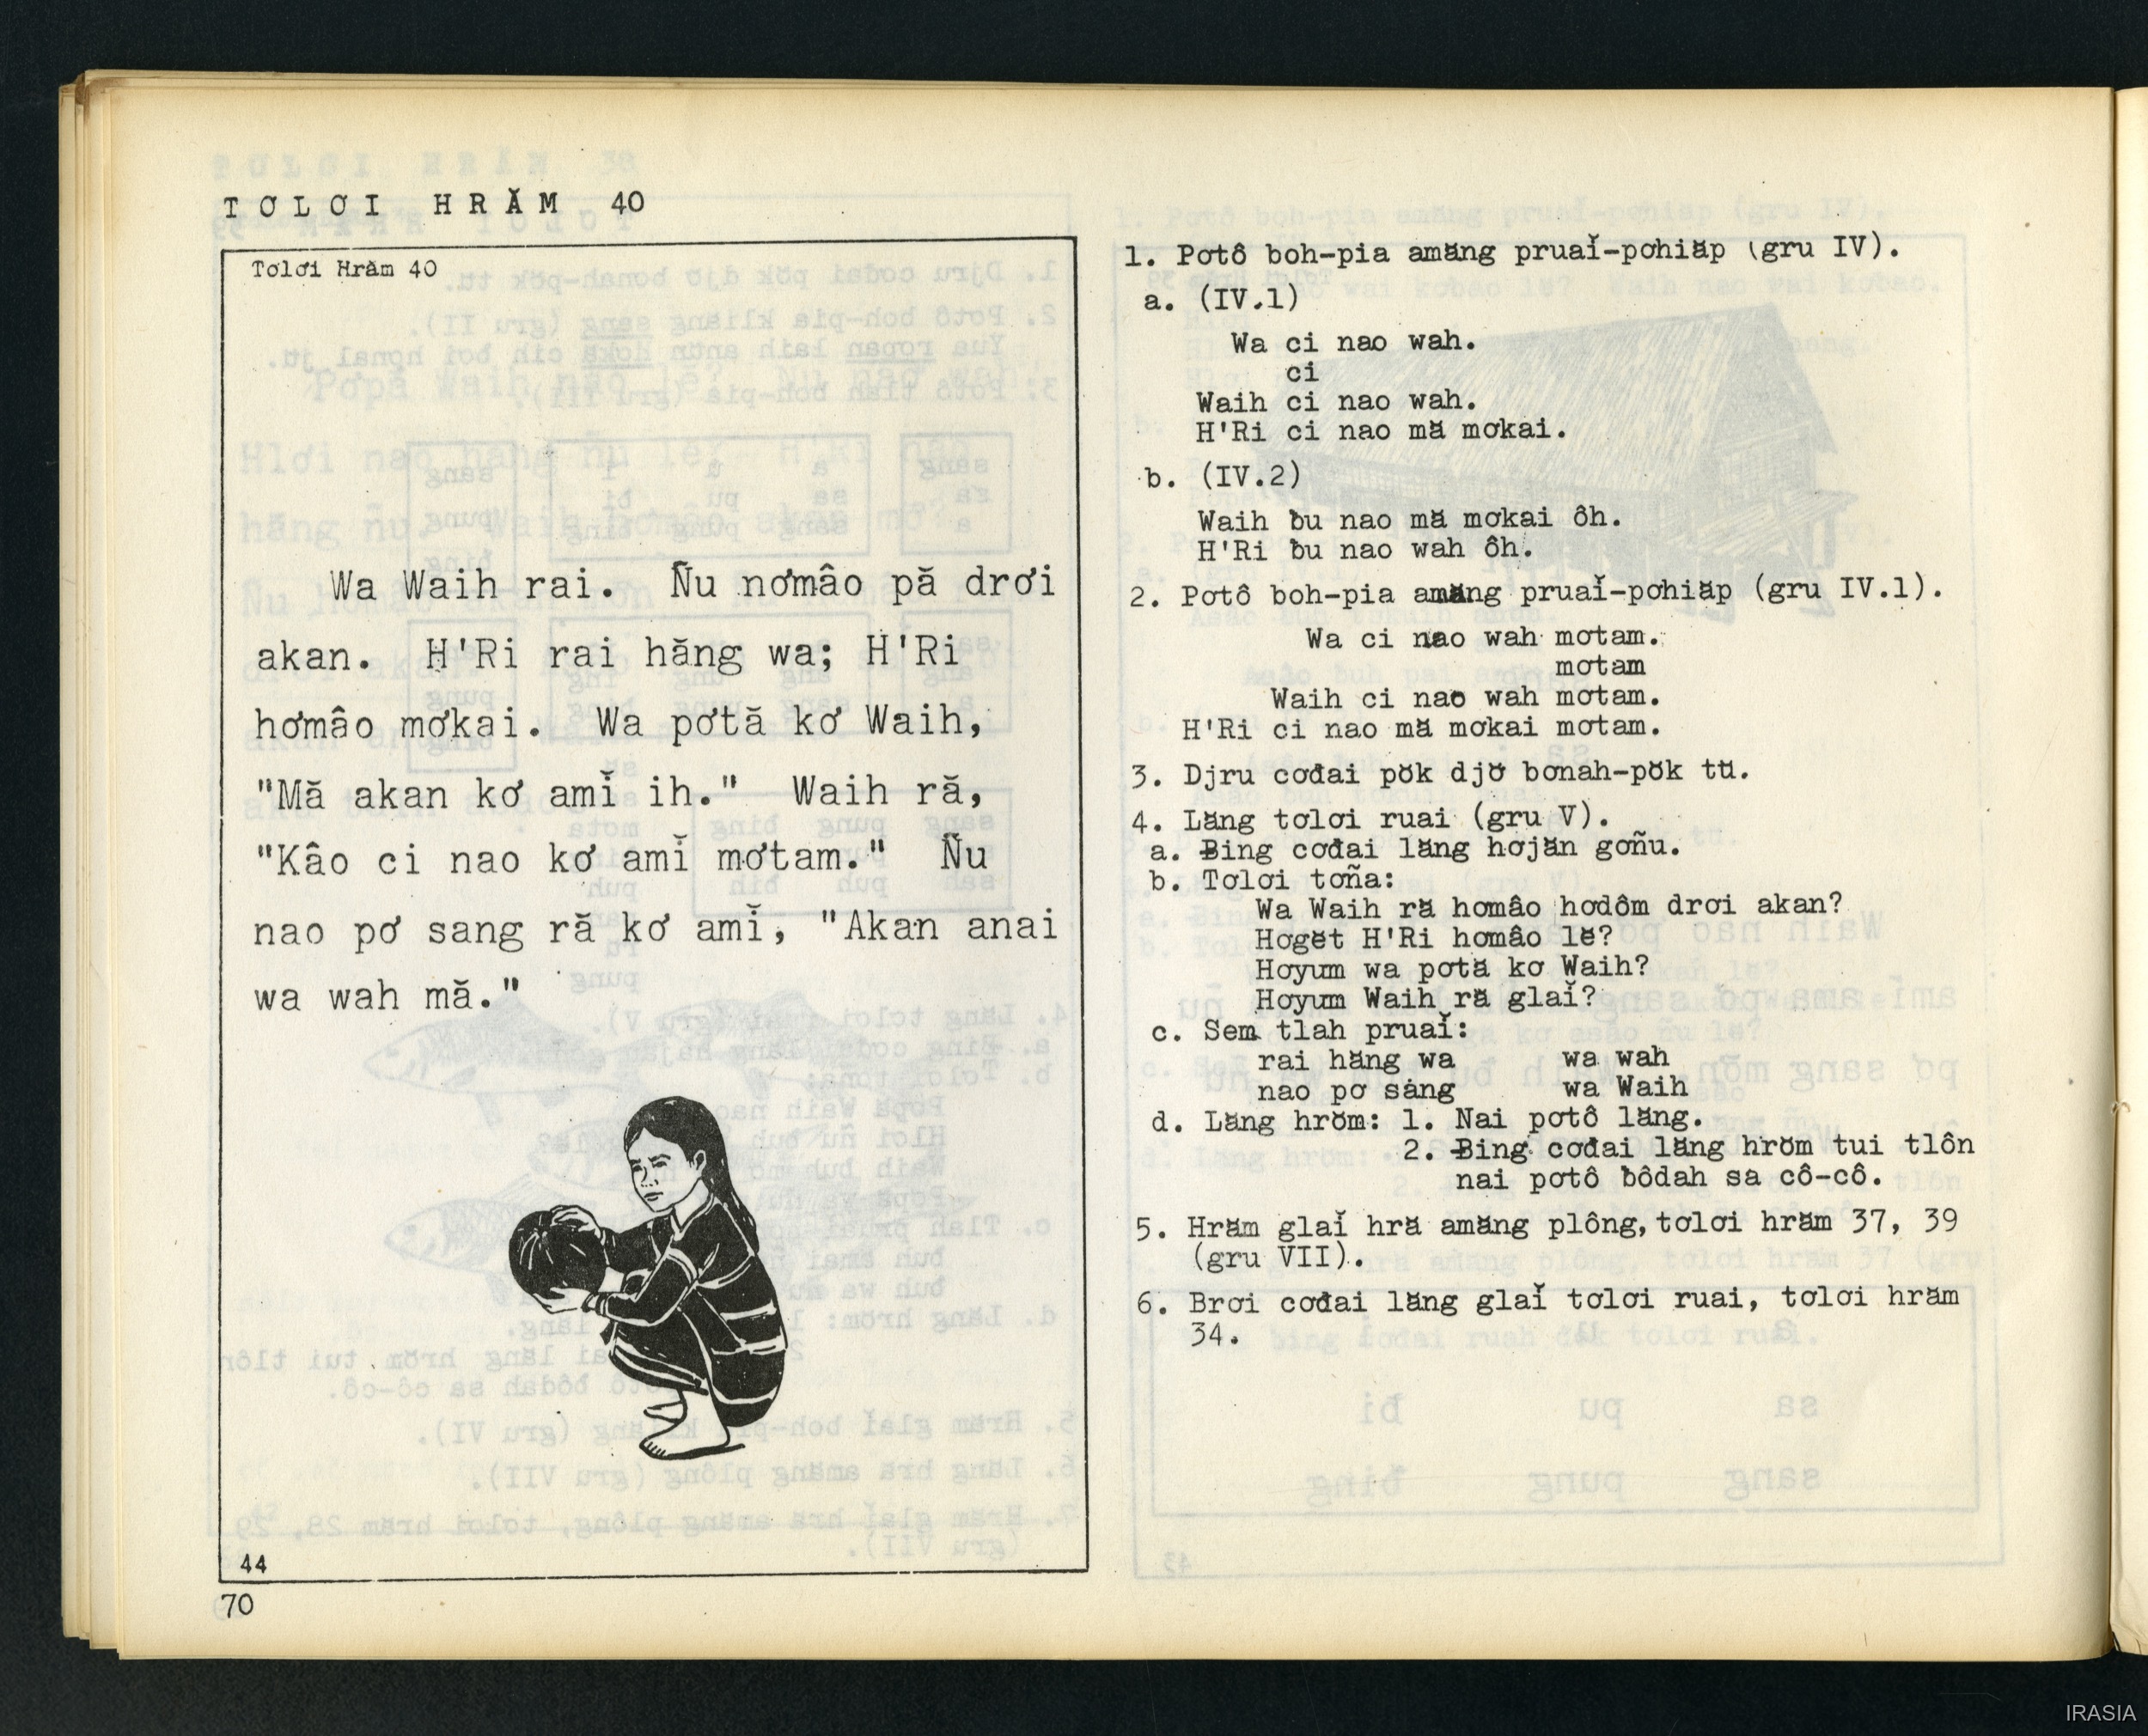 TƠLƠI HRĂM 40
Tơlơi Hrăm 40
Wa Waih rai. Ñu nơmâo pă drơi
akan. H'Ri rai hăng wa; H'Ri
hơmâo mơkai. Wa pơtă kơ Waih,
"Mă akan kơ amĭ ih." Waih ră,
"Kâo ci nao kơ amĭ mơtam." Ñu
nao pơ sang ră kơ amĭ, "Akan anai
wa wah mă."
44
70
1. Pơtô boh-pia amăng pruaĭ-pơhiăp (gru IV).
a. (IV.1)
Wa ci nao wah.
ci
Waih ci nao wah.
H'Ri ci nao mă mơkai.
b. (IV.2)
Waih ƀu nao mă mơkai ôh.
H'Ri ƀu nao wah ôh.
2. Pơtô boh-pia amăng pruaĭ-pơhiăp (gru IV.1).
Wa ci nao wah mơtam.
mơtam
Waih ci nao wah mơtam.
H'Ri ci nao mă mơkai mơtam.
3. Djru cơđai pŏk djơ̆ bơnah-pŏk tŭ.
4. Lăng tơlơi ruai (gru V).
a. Ƀing cơđai lăng hơjăn gơñu.
b. Tơlơi tơña:
Wa Waih ră hơmâo hơdôm drơi akan?
Hơgĕt H'Ri hơmâo lĕ?
Hơyum wa pơtă kơ Waih?
Hơyum Waih ră glaĭ?
c. Sem tlah pruaĭ:
rai hăng wa wa wah
nao pơ sang wa Waih
d. Lăng hrŏm: 1. Nai pơtô lăng.
2. Ƀing cơđai lăng hrŏm tui tlôn
nai pơtô ƀôdah sa cô-cô.
5. Hrăm glaĭ hră amăng plông, tơlơi hrăm 37, 39
(gru VII).
6. Brơi cơđai lăng glaĭ tơlơi ruai, tơlơi hrăm
34.
IRASIA